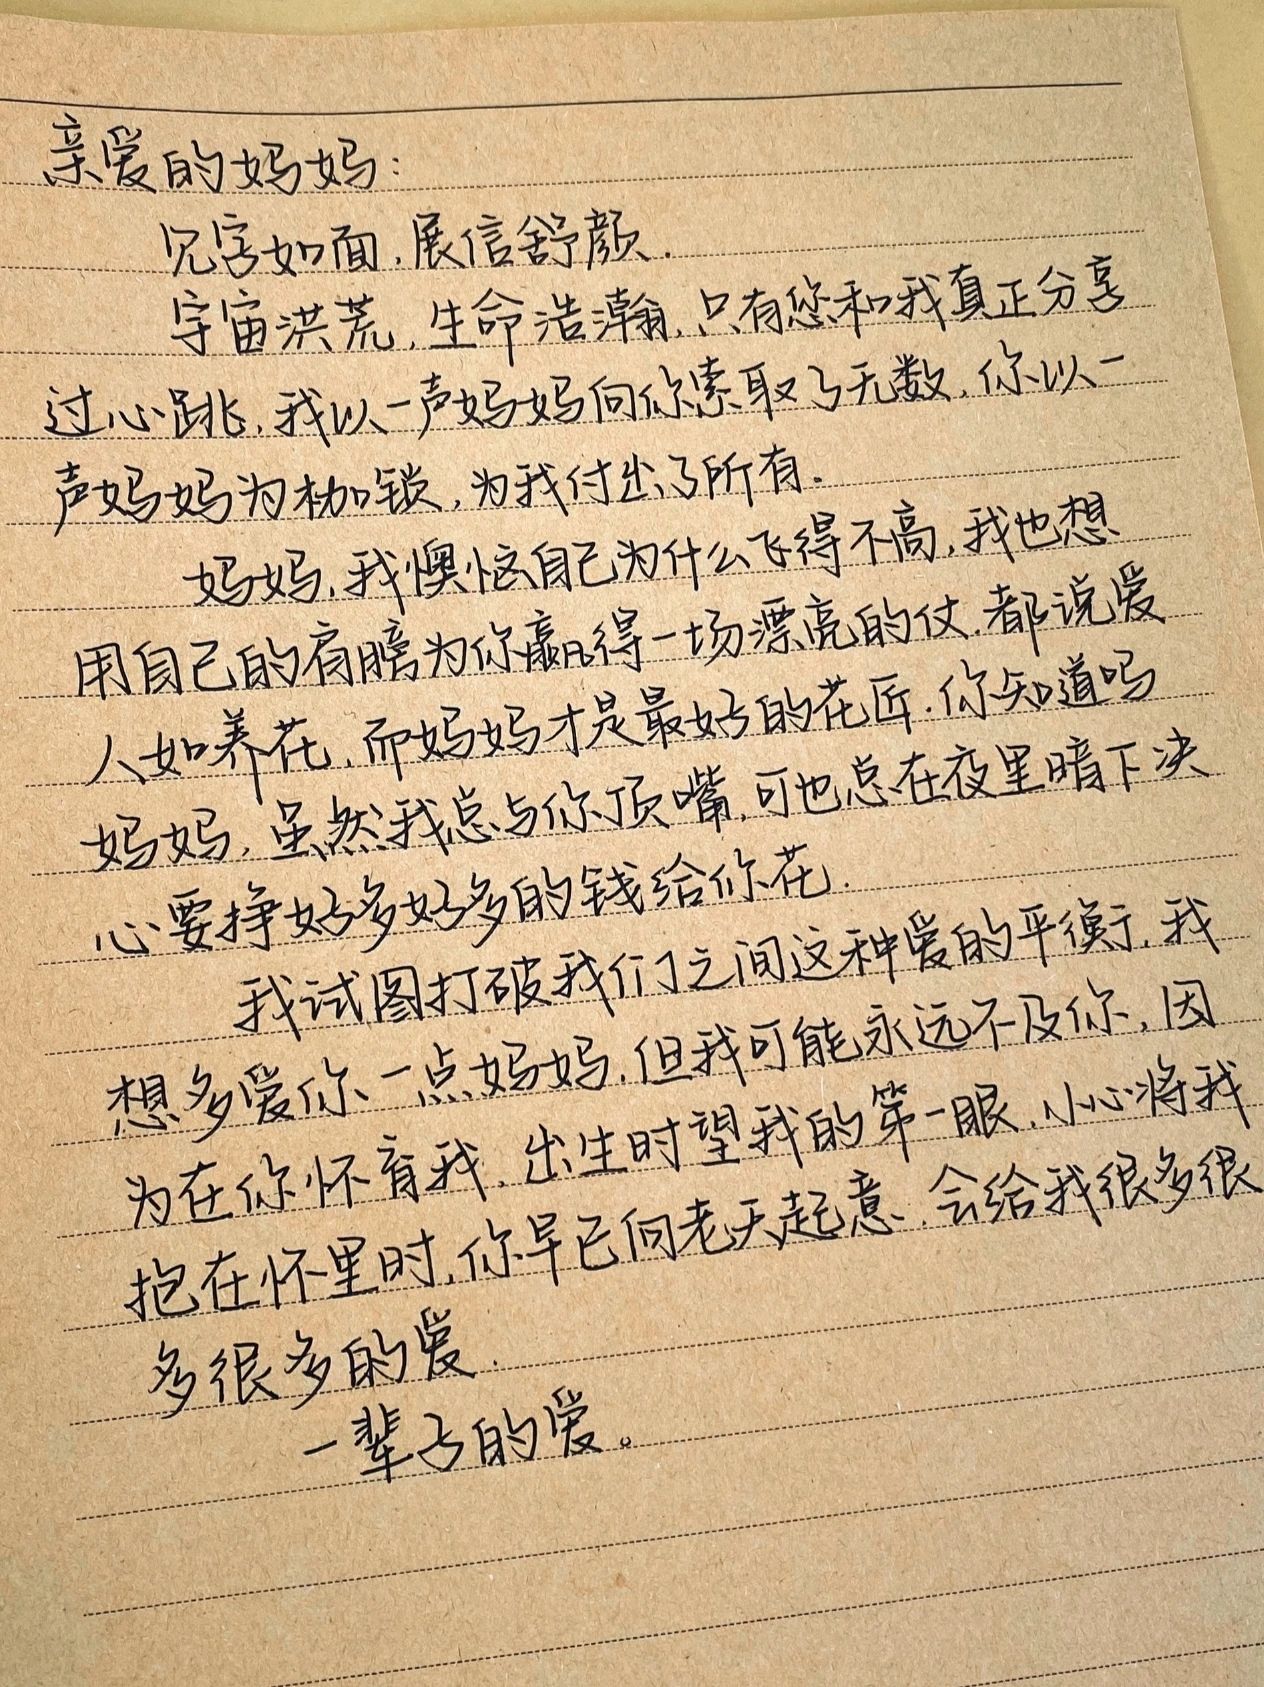 亲爱的妈妈：
见字如面，展信舒颜．
宇宙洪荒，生命浩瀚，只有您和我真正分享
过心跳，我以一声妈妈向你索取了无数，你以一
声妈妈为枷锁，为我付出了所有。
妈妈，我懊恼自己为什么飞得不高，我也想
用自己的肩膀为你赢得一场漂亮的仗．都说爱
人如养花，而妈妈才是最好的花匠．你知道吗
妈妈，虽然我总与你顶嘴，可也总在夜里暗下决
心要挣好多好多的钱给你花．
我试图打破我们之间这种爱的平衡，我
想多爱你一点妈妈，但我可能永远不及你，因
为在你怀育我，出生时望我的第一眼，小心将我
抱在怀里时，你早已向老天起意，会给我很多很
多很多的爱．
一辈子的爱。